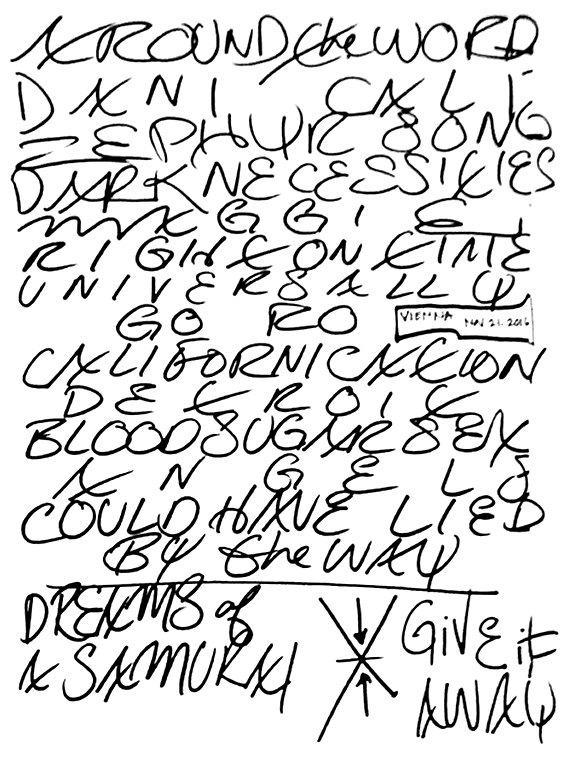 AROUND the WORD
DANI CALI
ZEPHYR SONG
DARK NECESSITIES
MAGGIE
RIGHT ON TIME
UNIVERSALLY
GO RO
VIENNA NOV 21. 2016
CALIFORNICATION
DETROIT
BLOOD SUGAR SEX
ANGELS
COULD HAVE LIED
BY the WAY
DREAMS of
A SAMURAI
GIVE it
AWAY